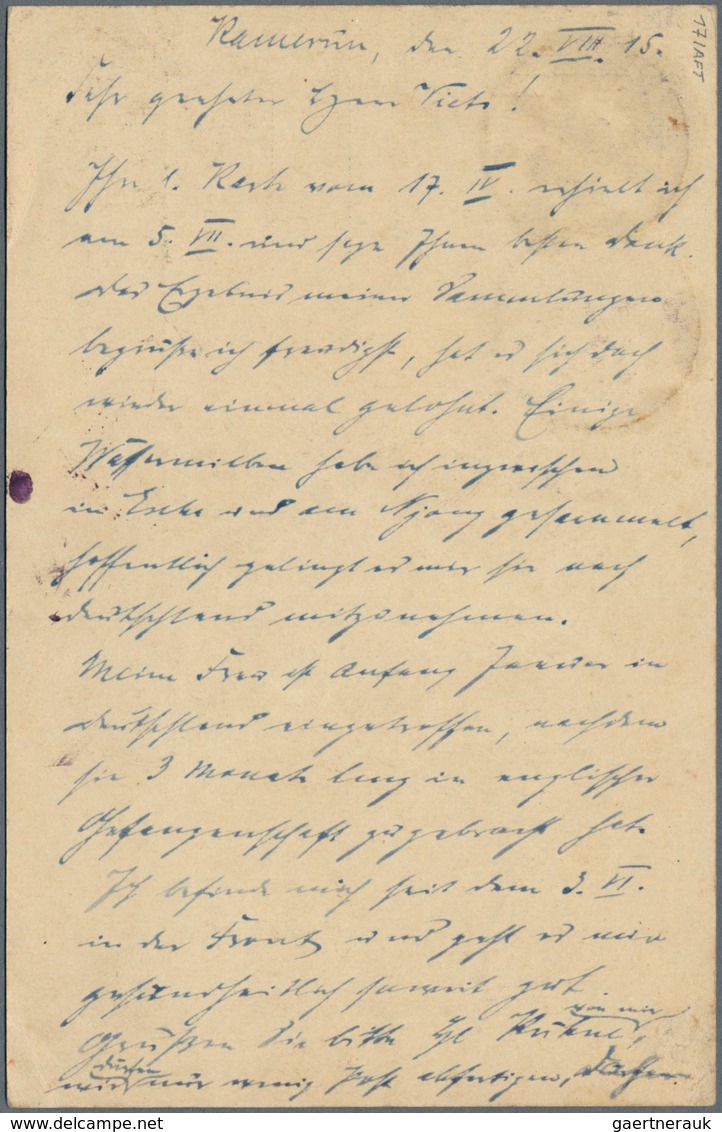 Kamerun, den 22. VIII. 15.
Sehr geehrter Herr Viets!
Ihre l. Karte vom 17. IV. erhielt ich
am 5. VII. und sage Ihnen besten Dank.
Das Ergebnis meiner Sammlungen
begrüße ich freudigst, hat es sich doch
wieder einmal gelohnt. Einige
Wassermilben habe ich inzwischen
in und am Njong gesammelt,
hoffentlich gelingt es mir sie nach
Deutschland mitzunehmen.
Meine Frau ist Anfang Januar in
Deutschland eingetroffen, nachdem
sie 3 Monate lang in englischer
Gefangenschaft zugebracht hat.
Ich befinde mich seit dem 3. VI.
in der Front und geht es mir
gesundheitlich soweit gut.
Grüßen Sie bitte von mir,
wir dürfen nur wenig Post abfertigen,
17/AFT
gaertnerauk